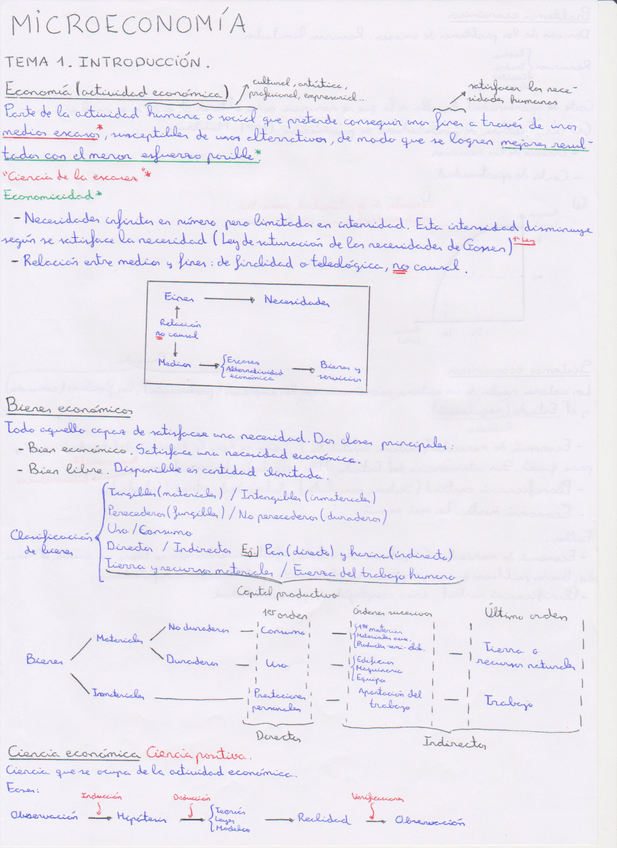 MICROECONOMÍA
TEMA 1. INTRODUCCIÓN.
cultural, artística,
profesional, empresarial...
satisfacer las nece-
sidades humanas
Economía (actividad económica)
Parte de la actividad humana o social que pretende conseguir unos fines a través de unos
medios escasos*, susceptibles de usos alternativos, de modo que se logren mejores resul-
tados con el menor esfuerzo posible*.
"Ciencia de la escasez"*
Economicidad*
- Necesidades infinitas en número pero limitadas en intensidad. Esta intensidad disminuye
según se satisface la necesidad (Ley de saturación de las necesidades de Gossen) 1ª Ley
- Relación entre medios y fines: de finalidad o teleológica, no causal.
Fines → Necesidades
Relación
no causal
Medios → Escasez
Alternatividad
económica
→ Bienes y
servicios
Bienes económicos
Todo aquello capaz de satisfacer una necesidad. Dos clases principales:
- Bien económico. Satisface una necesidad económica.
- Bien libre. Disponible en cantidad ilimitada.
Clasificación
de bienes
Tangibles (materiales) / Intangibles (inmateriales)
Perecederos (fungibles) / No perecederos (duraderos)
Uso / Consumo
Directos / Indirectos Ej Pan (directo) y harina (indirecto)
Tierra y recursos materiales / Fuerza del trabajo humano
Capital productivo
1er orden
Órdenes sucesivos
Último orden
Bienes
Materiales
No duraderos — Consumo
1as materias
Materiales aux.
Productos semi-elab.
Tierra o
recursos naturales
Duraderos — Uso
Edificios
Maquinaria
Equipo
Inmateriales
Prestaciones
personales
Aportación del
trabajo
Trabajo
Directos
Indirectos
Ciencia económica Ciencia positiva.
Ciencia que se ocupa de la actividad económica.
Fases:
Inducción
Deducción
Verificaciones
Observación → Hipótesis → Teorías
Leyes
Modelos
→ Realidad → Observación